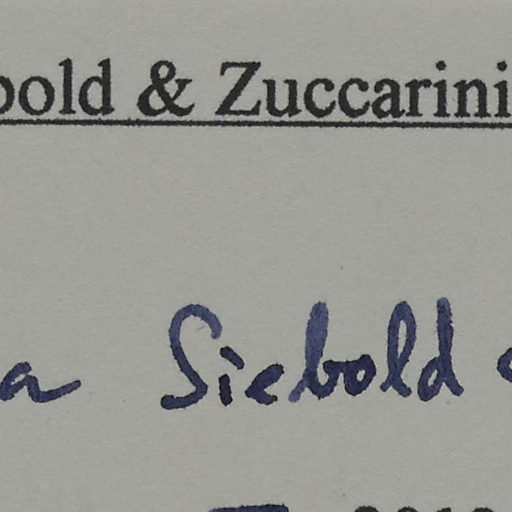 bold & Zuccarini
a Siebold